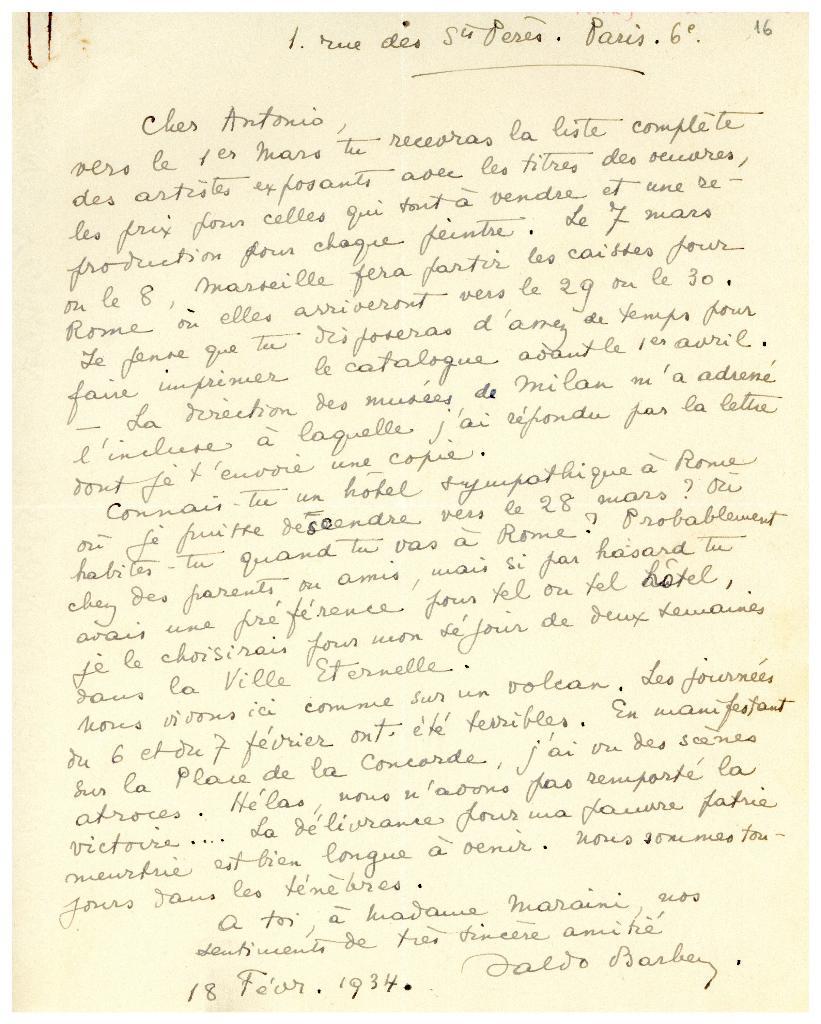 16
1. rue des Sts Pères. Paris. 6e.
Cher Antonio,
vers le 1er Mars tu recevras la liste complète
des artistes exposants avec les titres des oeuvres,
les prix pour celles qui sont à vendre et une re-
production pour chaque peintre. Le 7 mars
ou le 8, Marseille fera partir les caisses pour
Rome où elles arriveront vers le 29 ou le 30.
Je pense que tu disposeras d'assez de temps pour
faire imprimer le catalogue avant le 1er avril.
— La direction des musées de Milan m'a adressé
l'incluse à laquelle j'ai répondu par la lettre
dont je t'envoie une copie.
Connais-tu un hôtel sympathique à Rome
où je puisse descendre vers le 28 mars? Où
habites-tu quand tu vas à Rome? Probablement
chez des parents ou amis, mais si par hasard tu
avais une préférence pour tel ou tel hôtel,
je le choisirais pour mon séjour de deux semaines
dans la Ville Eternelle.
Nous vivons ici comme sur un volcan. Les journées
du 6 et du 7 février ont été terribles. En manifestant
sur la Place de la Concorde, j'ai vu des scènes
atroces. Hélas, nous n'avons pas remporté la
victoire.... La délivrance pour ma pauvre patrie
meurtrie est bien longue à venir. Nous sommes tou-
jours dans les ténèbres.
A toi, à Madame Maraini, nos
sentiments de très sincère amitié
Daldo Barbey.
18 Févr. 1934.